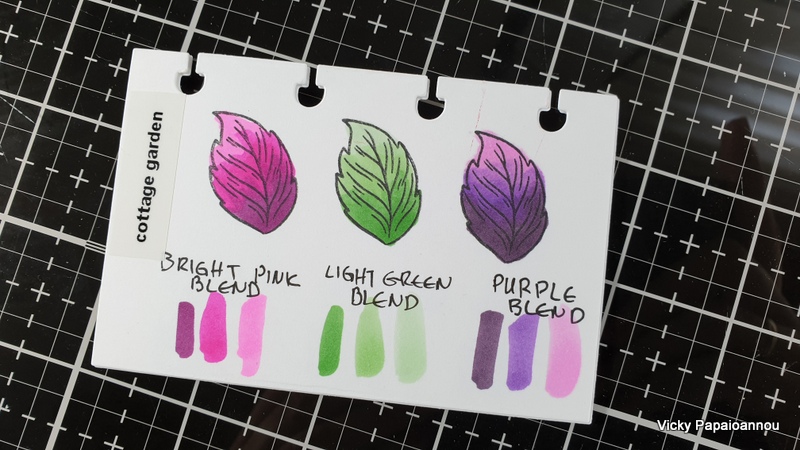 cottage garden
BRIGHT PINK
BLEND
LIGHT GREEN
BLEND
PURPLE
BLEND
Vicky Papaioannou